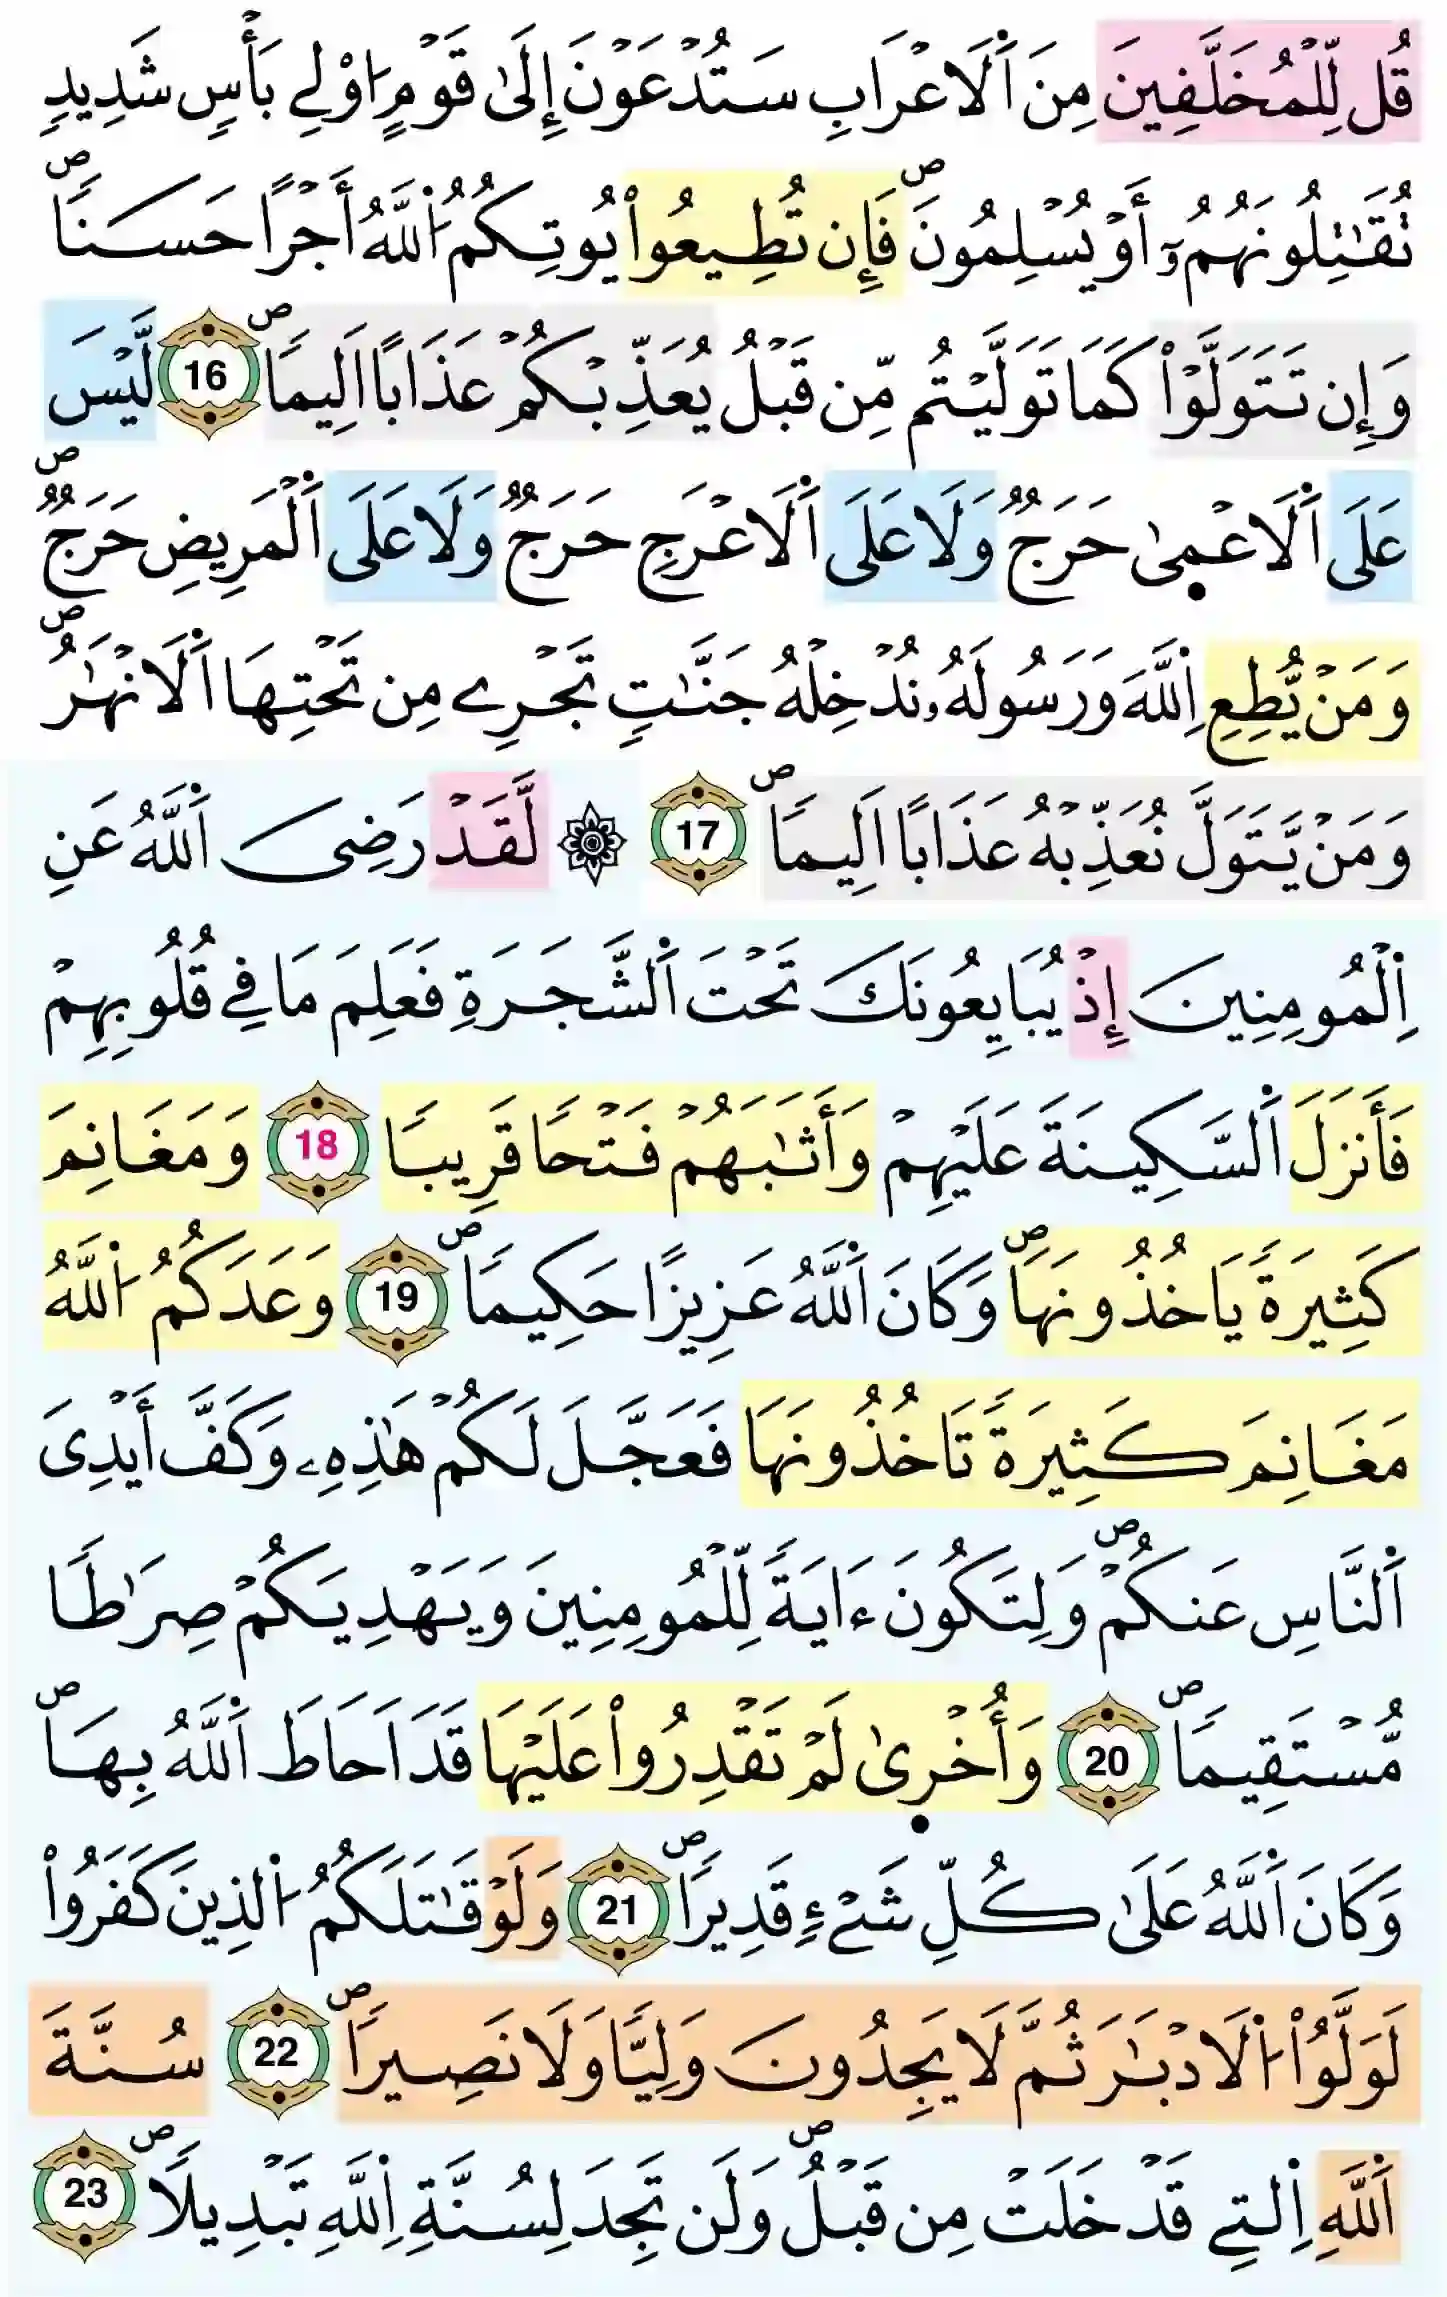 قُل لِّلْمُخَلَّفِينَ مِنَ اَ۬لَاعْرَابِ سَتُدْعَوْنَ إِلَىٰ قَوْمٍ ا۟وْلِے بَأْسٖ شَدِيدٖ
تُقَٰتِلُونَهُمُۥٓ أَوْ يُسْلِمُونَۖ فَإِن تُطِيعُواْ يُوتِكُمُ اُ۬للَّهُ أَجْراً حَسَناٗۖ
وَإِن تَتَوَلَّوْاْ كَمَا تَوَلَّيْتُم مِّن قَبْلُ يُعَذِّبْكُمْ عَذَاباً اَلِيماٗۖ 16 لَّيْسَ
عَلَى اَ۬لَاعْمٜىٰ حَرَجٞ وَلَا عَلَى اَ۬لَاعْرَجِ حَرَجٞ وَلَا عَلَى اَ۬لْمَرِيضِ حَرَجٞۖ
وَمَنْ يُّطِعِ اِ۬للَّهَ وَرَسُولَهُۥ نُدْخِلْهُ جَنَّٰتٖ تَجْرِے مِن تَحْتِهَا اَ۬لَانْهَٰرُۖ
وَمَنْ يَّتَوَلَّ نُعَذِّبْهُ عَذَاباً اَلِيماٗۖ 17 ۞ لَّقَدْ رَضِىَ اَ۬للَّهُ عَنِ
اِ۬لْمُومِنِينَ إِذْ يُبَايِعُونَكَ تَحْتَ اَ۬لشَّجَرَةِ فَعَلِمَ مَا فِے قُلُوبِهِمْ
فَأَنزَلَ اَ۬لسَّكِينَةَ عَلَيْهِمْ وَأَثَٰبَهُمْ فَتْحاٗ قَرِيباٗ 18 وَمَغَانِمَ
كَثِيرَةٗ يَاخُذُونَهَاۖ وَكَانَ اَ۬للَّهُ عَزِيزاً حَكِيماٗۖ 19 وَعَدَكُمُ اُ۬للَّهُ
مَغَانِمَ كَثِيرَةٗ تَاخُذُونَهَا فَعَجَّلَ لَكُمْ هَٰذِهِۦ وَكَفَّ أَيْدِىَ
اَ۬لنَّاسِ عَنكُمْۖ وَلِتَكُونَ ءَايَةٗ لِّلْمُومِنِينَ وَيَهْدِيَكُمْ صِرَٰطاٗ
مُّسْتَقِيماٗۖ 20 وَأُخْر۪ىٰ لَمْ تَقْدِرُواْ عَلَيْهَا قَدَ اَحَاطَ اَ۬للَّهُ بِهَاۖ
وَكَانَ اَ۬للَّهُ عَلَىٰ كُلِّ شَےْءٖ قَدِيراٗۖ 21 وَلَوْ قَٰتَلَكُمُ اُ۬لذِينَ كَفَرُواْ
لَوَلَّوُاْ اُ۬لَادْبَٰرَ ثُمَّ لَا يَجِدُونَ وَلِيّاٗ وَلَا نَصِيراٗۖ 22 سُنَّةَ
اَ۬للَّهِ اِ۬لتِے قَدْ خَلَتْ مِن قَبْلُۖ وَلَن تَجِدَ لِسُنَّةِ اِ۬للَّهِ تَبْدِيلاٗۖ 23